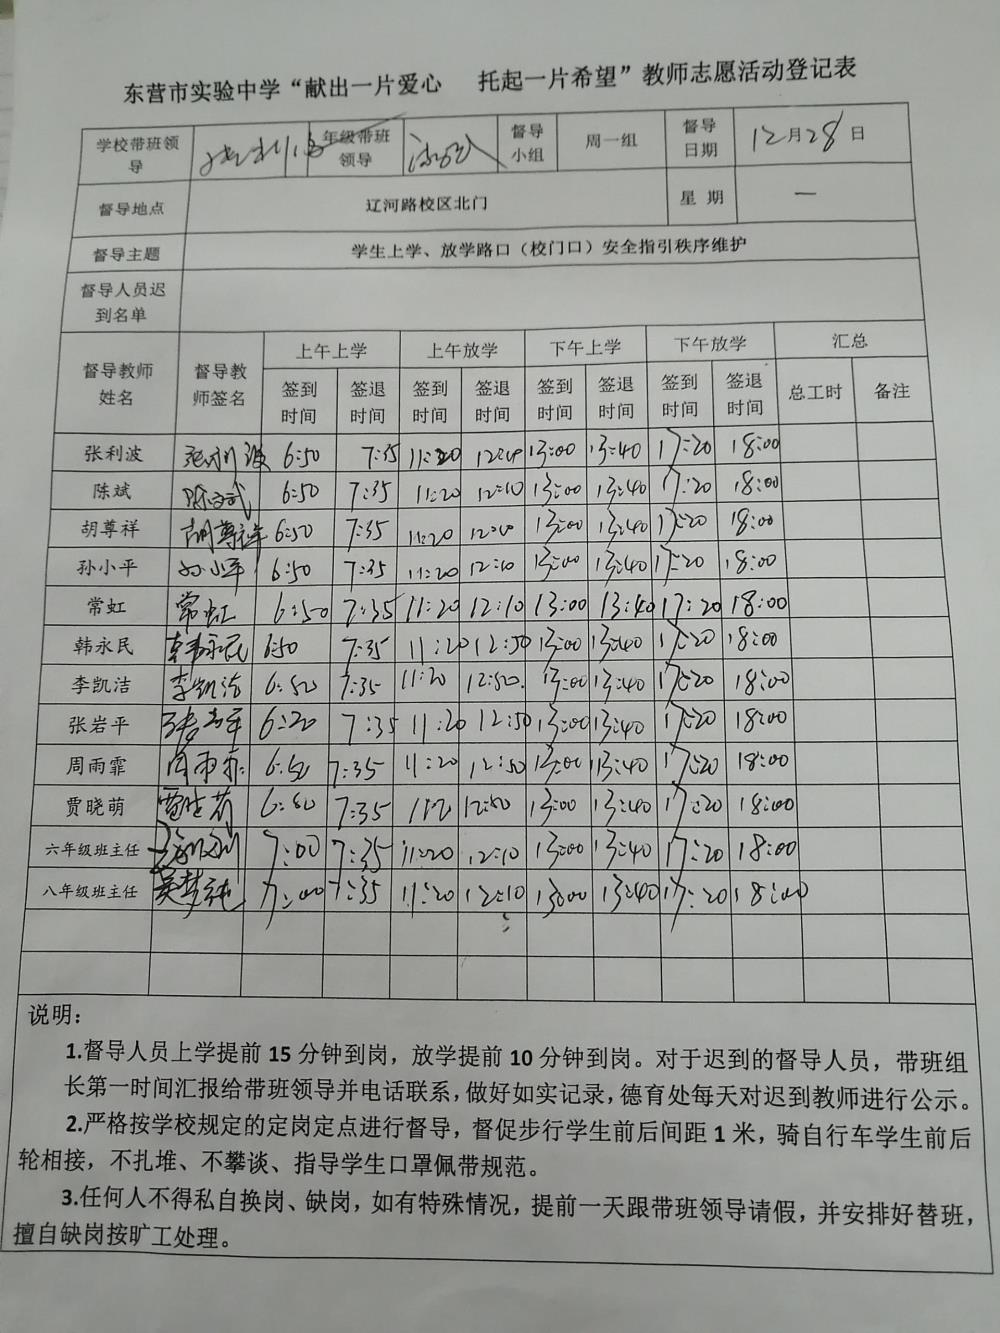 东营市实验中学“献出一片爱心 托起一片希望”教师志愿活动登记表
学校带班领导 张利波 年级带班领导 督导小组 周一组 督导日期 12月28日
督导地点 辽河路校区北门 星 期 一
督导主题 学生上学、放学路口（校门口）安全指引秩序维护
督导人员迟到名单
督导教师姓名 督导教师签名 上午上学 上午放学 下午上学 下午放学 汇总
签到时间 签退时间 签到时间 签退时间 签到时间 签退时间 签到时间 签退时间 总工时 备注
张利波 张利波 6:50 7:35 11:20 12:10 13:00 13:40 17:20 18:00
陈斌 陈斌 6:50 7:35 11:20 12:10 13:00 13:40 17:20 18:00
胡尊祥 胡尊祥 6:50 7:35 11:20 12:10 13:00 13:40 17:20 18:00
孙小平 孙小平 6:50 7:35 11:20 12:10 13:00 13:40 17:20 18:00
常虹 常虹 6:50 7:35 11:20 12:10 13:00 13:40 17:20 18:00
韩永民 韩永民 6:50 7:35 11:20 12:50 13:00 13:40 17:20 18:00
李凯洁 李凯洁 6:50 7:35 11:20 12:50 13:00 13:40 17:20 18:00
张岩平 张岩平 6:20 7:35 11:20 12:50 13:00 13:40 17:20 18:00
周雨霏 周雨霏 6:50 7:35 11:20 12:50 13:00 13:40 17:20 18:00
贾晓萌 贾晓萌 6:50 7:35 11:20 12:50 13:00 13:40 17:20 18:00
六年级班主任 7:00 7:35 11:20 12:10 13:00 13:40 17:20 18:00
八年级班主任 吴梦纯 7:00 7:35 11:20 12:10 13:00 13:40 17:20 18:00
说明：
1.督导人员上学提前 15 分钟到岗，放学提前 10 分钟到岗。对于迟到的督导人员，带班组
长第一时间汇报给带班领导并电话联系，做好如实记录，德育处每天对迟到教师进行公示。
2.严格按学校规定的定岗定点进行督导，督促步行学生前后间距 1 米，骑自行车学生前后
轮相接，不扎堆、不攀谈、指导学生口罩佩带规范。
3.任何人不得私自换岗、缺岗，如有特殊情况，提前一天跟带班领导请假，并安排好替班，
擅自缺岗按旷工处理。